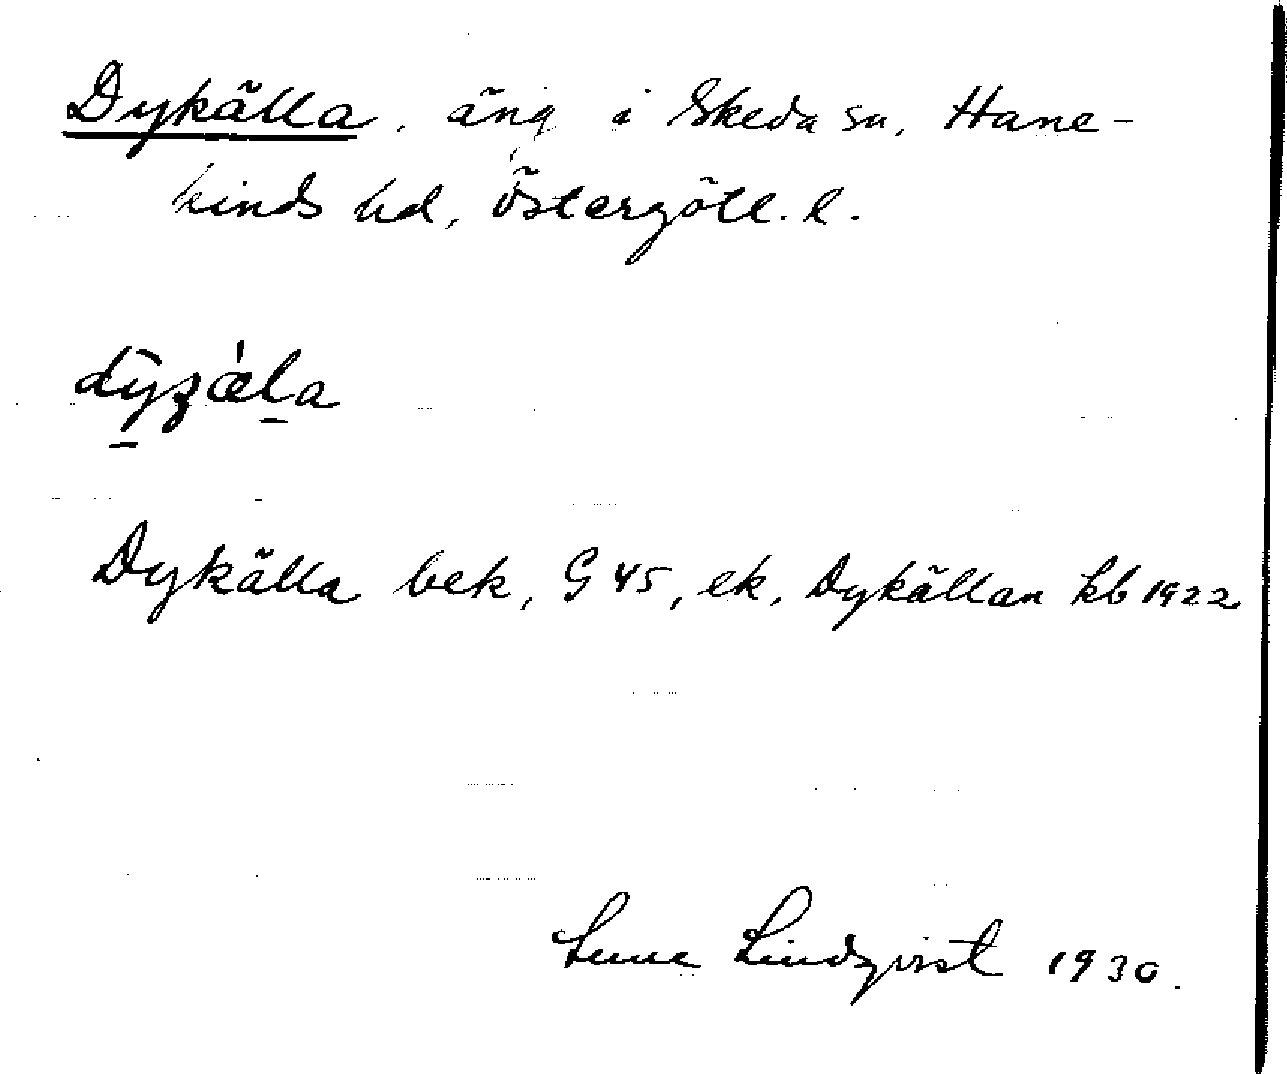 Dykälla, äng i Skeda sn, Hane-
kinds hd, Östergötl. l.
Dykälla bek, G 45, ek, Dykällan kb 1922
Sune Lindqvist 1930.